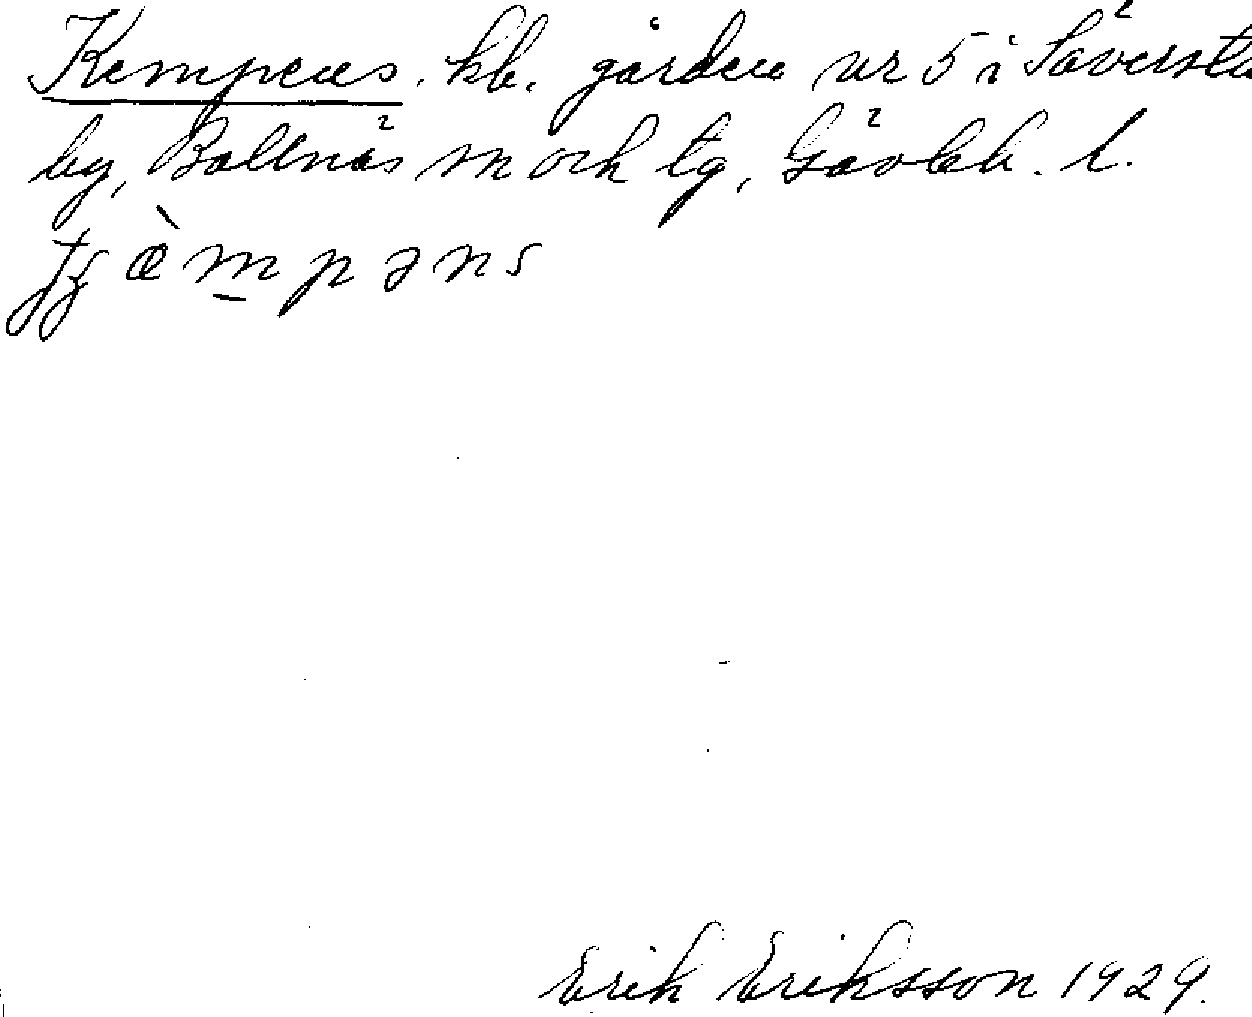 Kempens, kb. gården nr 5 i Säversta
by, Bollnäs sn och tg, Gävleb. l.
tʂæ̀m̲pəns
Erik Eriksson 1929.